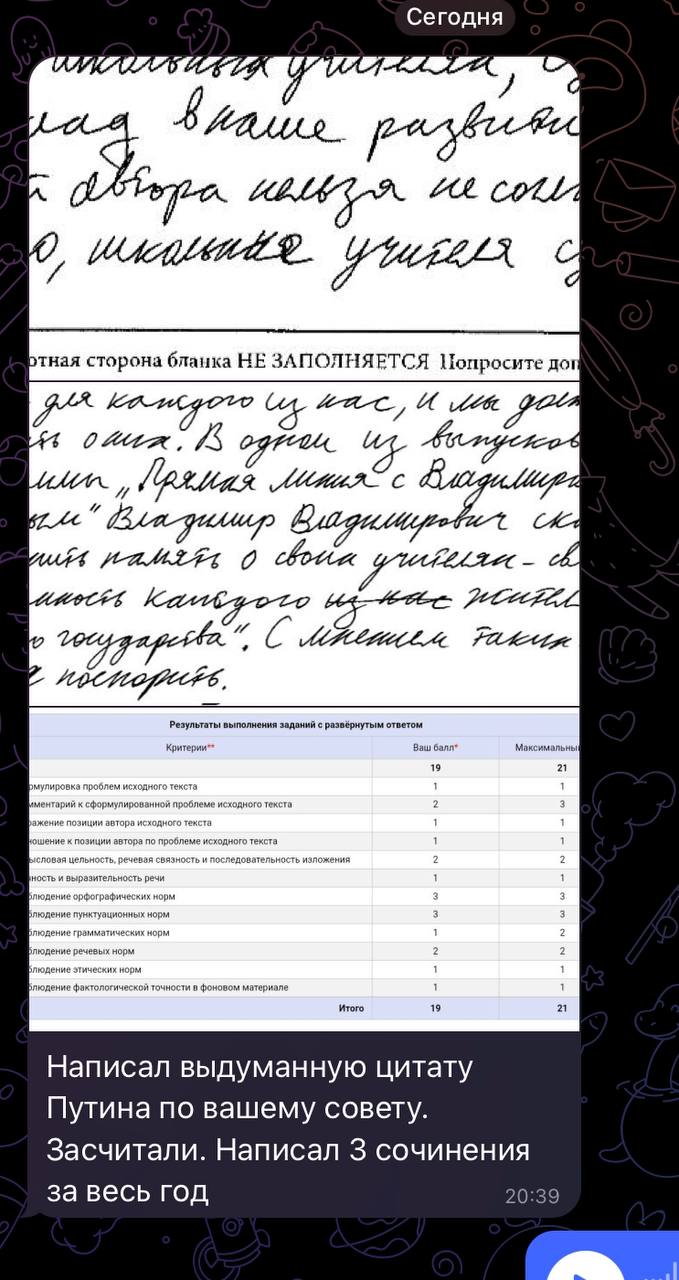 Сегодня
школьных учителях,
лад в наше развити
й автора нельзя не согл
о, школьные учителя
отная сторона бланка НЕ ЗАПОЛНЯЕТСЯ Попросите доп
для каждого из нас, и мы дол
ть о них. В одном из выпусков
ммы „Прямая линия с Владимир
ым" Владимир Владимирович ск
нить память о своих учителях - св
нность каждого из нас жител
о государства". С мнением таким
я поспорить.
Результаты выполнения заданий с развёрнутым ответом
Критерии** Ваш балл* Максимальны
19 21
рмулировка проблем исходного текста 1 1
мментарий к сформулированной проблеме исходного текста 2 3
ражение позиции автора исходного текста 1 1
ношение к позиции автора по проблеме исходного текста 1 1
ысловая цельность, речевая связность и последовательность изложения 2 2
чность и выразительность речи 1 1
блюдение орфографических норм 3 3
блюдение пунктуационных норм 3 3
блюдение грамматических норм 1 2
блюдение речевых норм 2 2
блюдение этических норм 1 1
блюдение фактологической точности в фоновом материале 1 1
Итого 19 21
Написал выдуманную цитату
Путина по вашему совету.
Засчитали. Написал 3 сочинения
за весь год
20:39